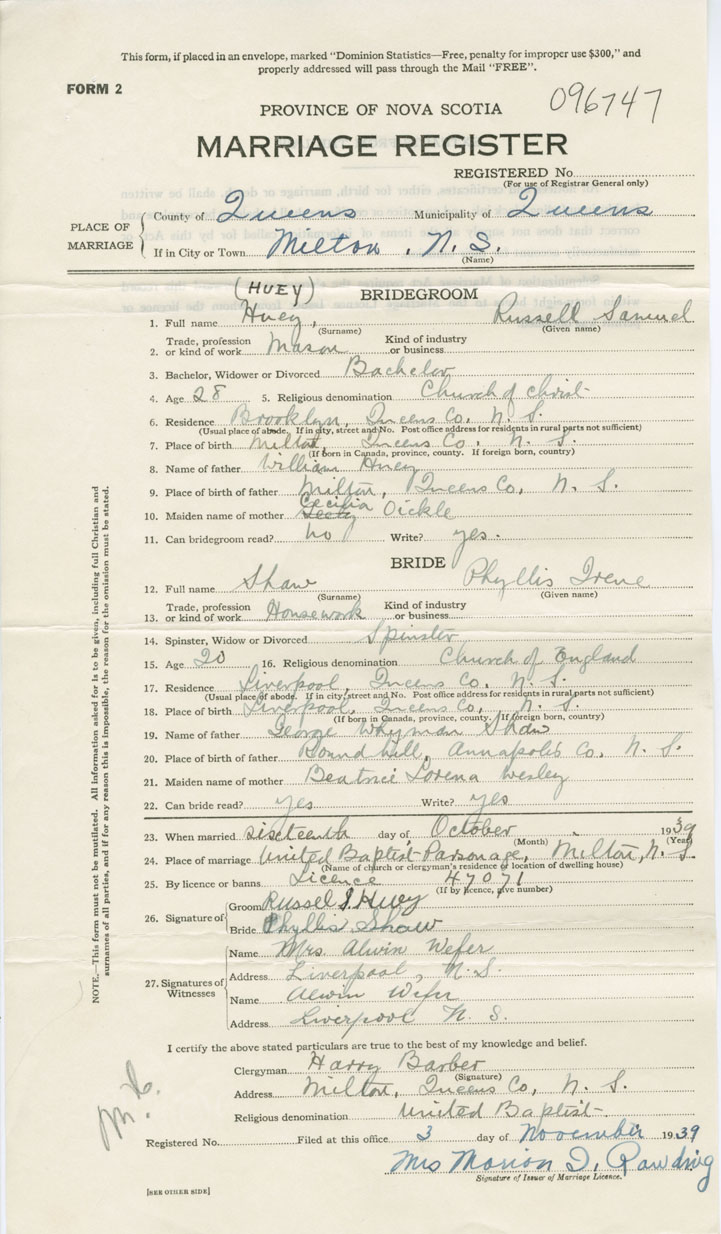 This form, if placed in an envelope, marked "Dominion Statistics—Free, penalty for improper use $300," and
properly addressed will pass through the Mail "FREE".
FORM 2
096747
PROVINCE OF NOVA SCOTIA
MARRIAGE REGISTER
REGISTERED No.
(For use of Registrar General only)
PLACE OF MARRIAGE
County of Queens Municipality of Queens
If in City or Town Milton, N. S.
(Name)
(HUEY)
BRIDEGROOM
1. Full name Huey, Russell Samuel
(Surname) (Given name)
2. Trade, profession or kind of work Mason Kind of industry or business
3. Bachelor, Widower or Divorced Bachelor
4. Age 28 5. Religious denomination Church of Christ
6. Residence Brooklyn, Queens Co, N. S.
(Usual place of abode. If in city, street and No. Post office address for residents in rural parts not sufficient)
7. Place of birth Milton, Queens Co, N. S.
(If born in Canada, province, county. If foreign born, country)
8. Name of father William Huey
9. Place of birth of father Milton, Queens Co, N. S.
10. Maiden name of mother Cecilia Oickle
11. Can bridegroom read? no Write? yes.
BRIDE
12. Full name Shaw Phyllis Irene
(Surname) (Given name)
13. Trade, profession or kind of work Housework Kind of industry or business
14. Spinster, Widow or Divorced Spinster
15. Age 20 16. Religious denomination Church of England
17. Residence Liverpool, Queens Co, N. S.
(Usual place of abode. If in city, street and No. Post office address for residents in rural parts not sufficient)
18. Place of birth Liverpool, Queens Co, N. S.
(If born in Canada, province, county. If foreign born, country)
19. Name of father George Whyman Shaw
20. Place of birth of father Round hill, Annapolis Co, N. S.
21. Maiden name of mother Beatrice Lorena Wesley
22. Can bride read? yes Write? yes
23. When married sixteenth day of October 1939
(Month) (Year)
24. Place of marriage United Baptist Parsonage, Milton, N. S.
(Name of church or clergyman's residence or location of dwelling house)
25. By licence or banns Licence 47071
(If by licence, give number)
26. Signature of
Groom Russel S. Huey
Bride Phyllis Shaw
27. Signatures of Witnesses
Name Mrs Alwin Wefer
Address Liverpool, N. S.
Name Alwin Wefer
Address Liverpool N. S.
I certify the above stated particulars are true to the best of my knowledge and belief.
Clergyman Harry Barber
(Signature)
Address Milton, Queens Co, N. S.
Religious denomination United Baptist
Registered No. Filed at this office 3 day of November 1939
Mrs Marion D. Rawding
Signature of Issuer of Marriage Licence.
[SEE OTHER SIDE]
NOTE.—This form must not be mutilated. All information asked for is to be given, including full Christian and
surnames of all parties, and if for any reason this is impossible, the reason for the omission must be stated.